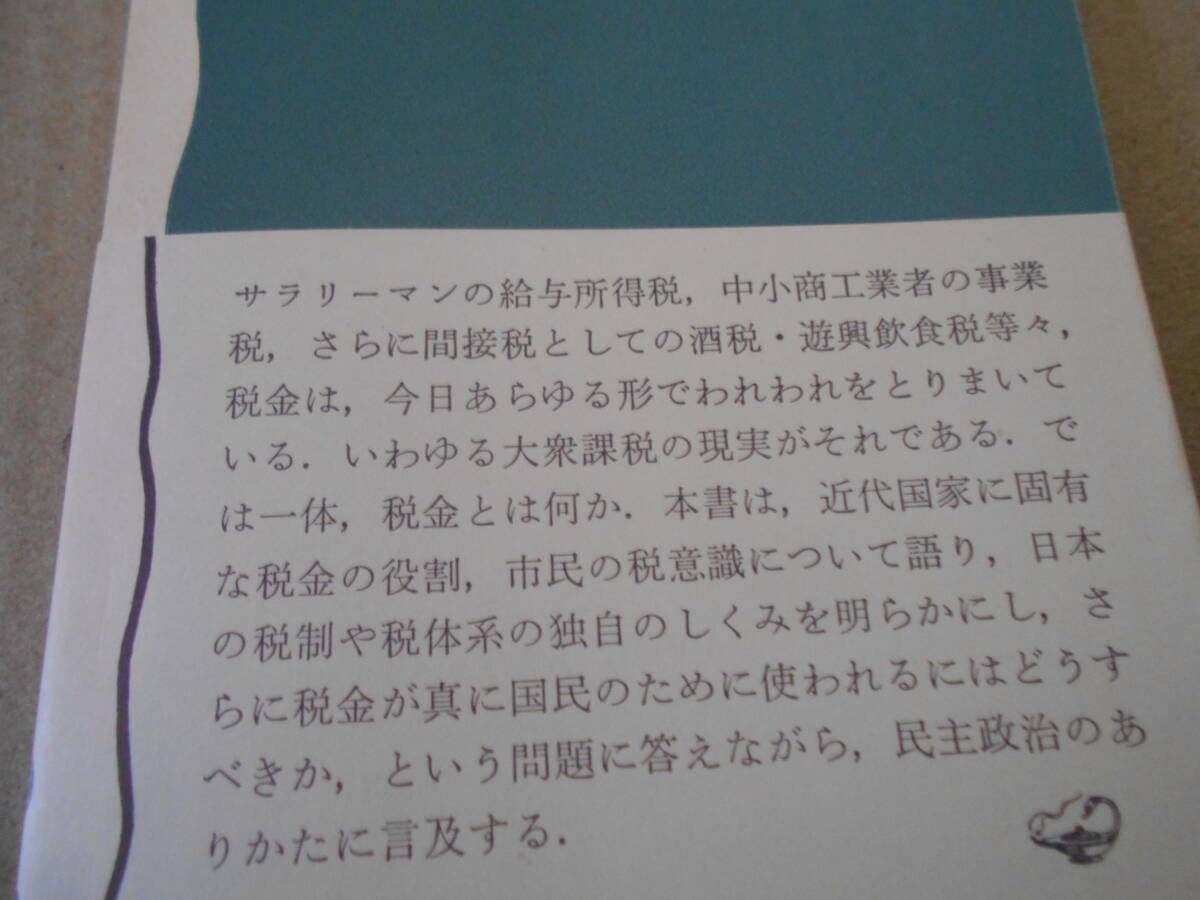 サラリーマンの給与所得税，中小商工業者の事業
税，さらに間接税としての酒税・遊興飲食税等々，
税金は，今日あらゆる形でわれわれをとりまいて
いる．いわゆる大衆課税の現実がそれである．で
は一体，税金とは何か．本書は，近代国家に固有
な税金の役割，市民の税意識について語り，日本
の税制や税体系の独自のしくみを明らかにし，さ
らに税金が真に国民のために使われるにはどうす
べきか，という問題に答えながら，民主政治のあ
りかたに言及する．